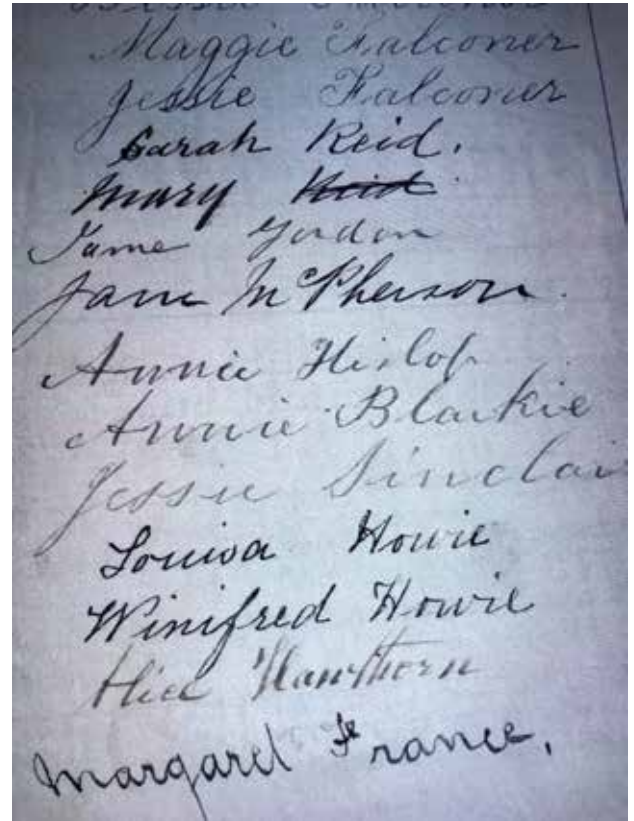 Maggie Falconer
Jessie Falconer
Sarah Reid.
Mary Reid
Jame Gordon
Jane McPherson.
Annie Hislop
Annie Blackie
Jessie Sinclair
Louisa Howie
Winifred Howie
Alice Hawthorn
Margaret France.